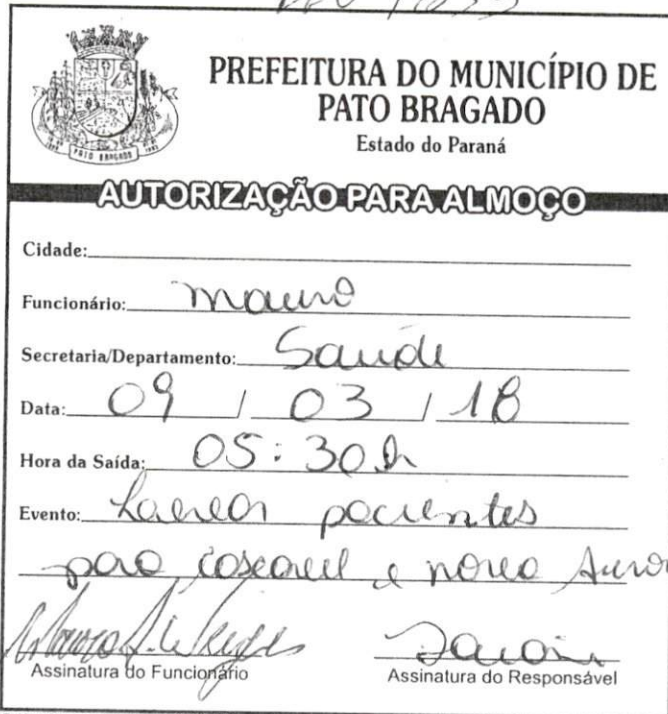 PREFEITURA DO MUNICÍPIO DE
PATO BRAGADO
Estado do Paraná
PATO BRAGADO
AUTORIZAÇÃO PARA ALMOÇO
Cidade:
Funcionário: Mauro
Secretaria/Departamento: Saúde
Data: 09 / 03 / 18
Hora da Saída: 05:30h
Evento: pacientes
para cascavel e nova Auror
Assinatura do Funcionário
Assinatura do Responsável